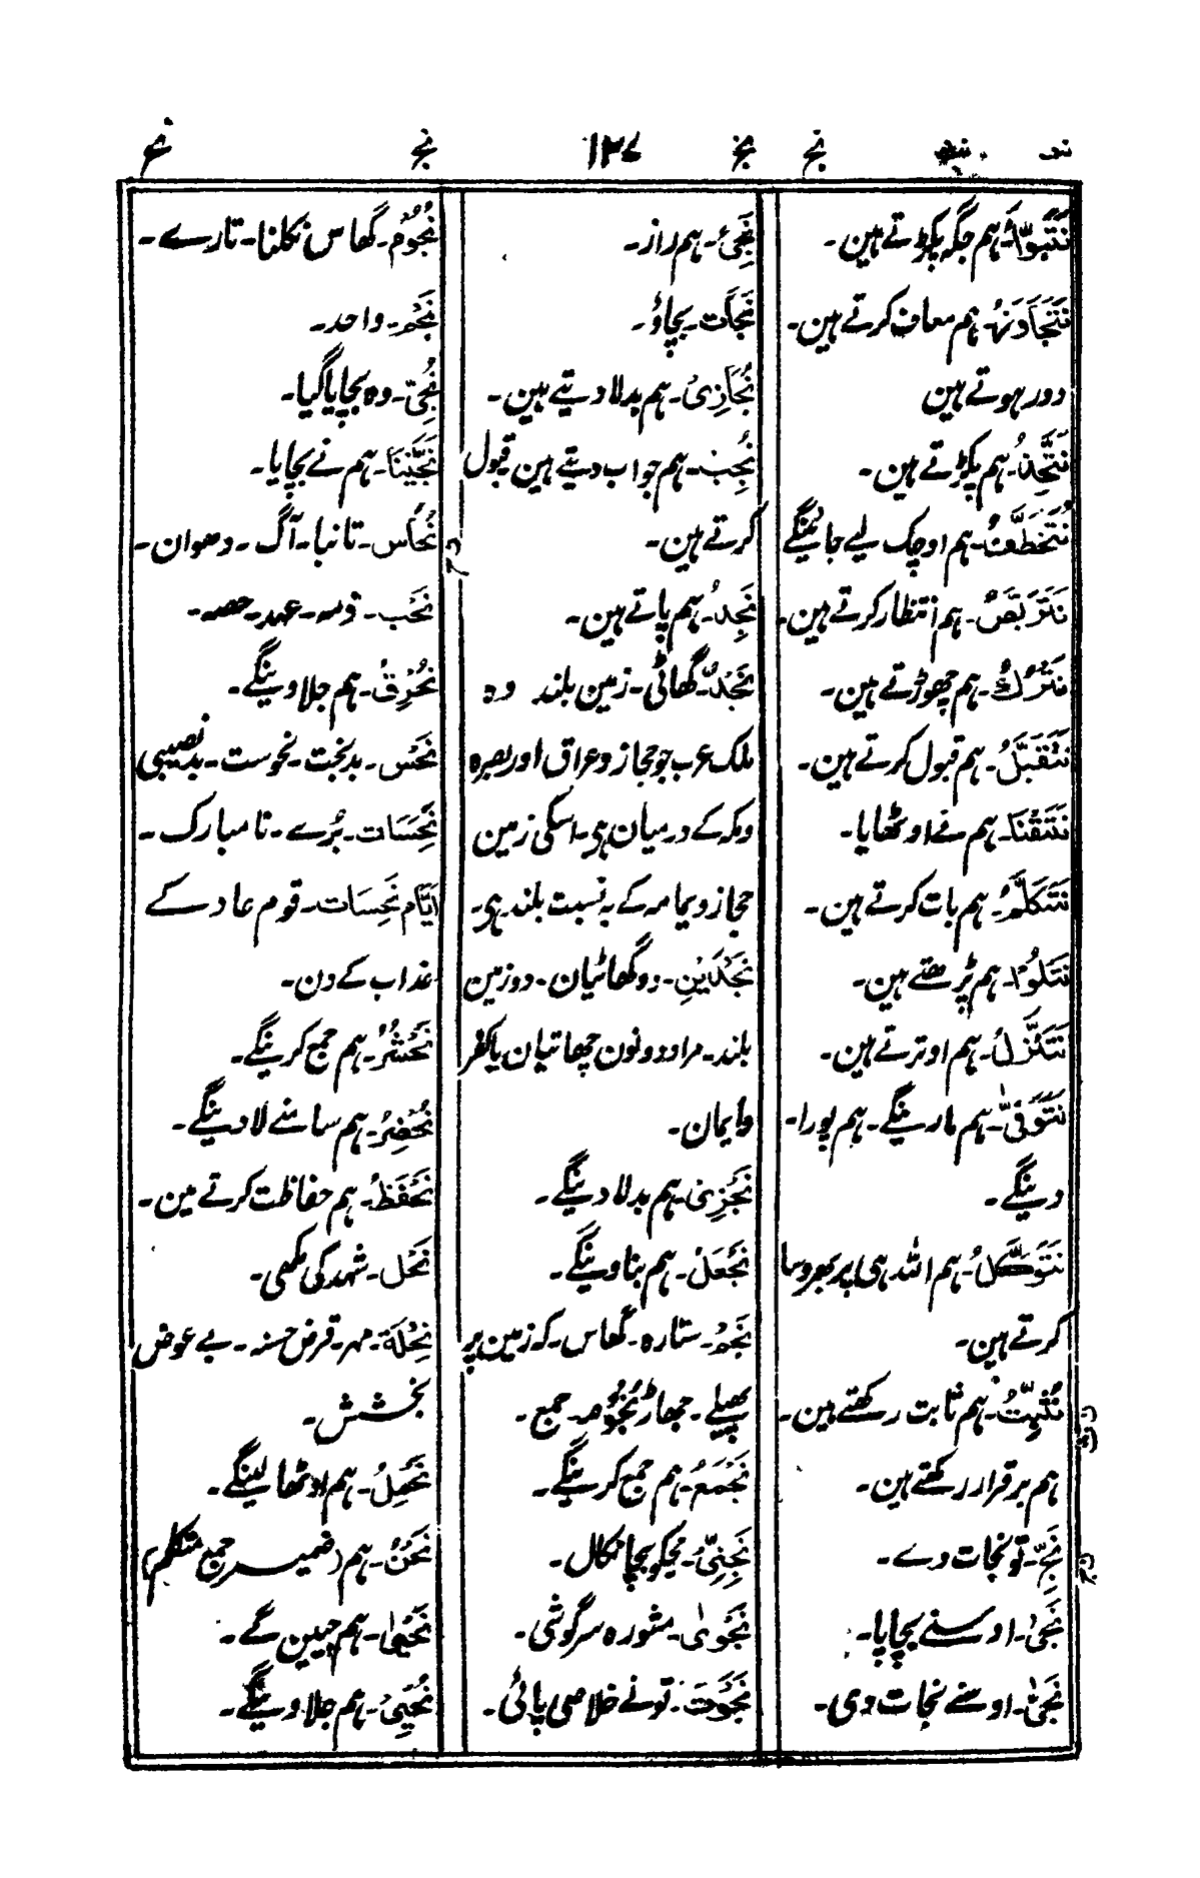 نج نج ۱۲۷ نج
نَتَبَوَّأُ۔ ہم جگہ پکڑتے ہین۔
نَتَجَاوَزُ۔ ہم معاف کرتے ہین۔
دور ہوتے ہین
نَتَّخِذُ۔ ہم پکڑتے ہین۔
نُتَخَطَّفْ۔ ہم اوچک لیے جائینگے
نَتَرَبَّصُ۔ ہم انتظار کرتے ہین۔
نَتْرُكُ۔ ہم چھوڑتے ہین۔
نَتَقَبَّلُ۔ ہم قبول کرتے ہین۔
نَتَقْنَا۔ ہم نے اوٹھایا۔
نَتَكَلَّمُ۔ ہم بات کرتے ہین۔
نَتْلُوْا۔ ہم پڑھتے ہین۔
نَتَنَزَّلُ۔ ہم اوترتے ہین۔
نَتَوَفَّیَنَّ۔ ہم مارینگے۔ ہم پورا۔
دینگے۔
نَتَوَكَّلُ۔ ہم اللہ ہی پر بھروسا
کرتے ہین۔
نُثَبِّتُ۔ ہم ثابت رکھتے ہین۔
ہم برقرار رکھتے ہین۔
نَجِّ۔ تو نجات دے۔
نَجٰی۔ اوسنے بچایا۔
نَجّٰی۔ اوسنے نجات دی۔
نَجِیّ۔ ہم راز۔
نَجَات۔ بچاؤ۔
نُجَازِیْ۔ ہم بدلا دیتے ہین۔
نُجِبْ۔ ہم جواب دیتے ہین قبول
کرتے ہین۔
نَجِدُ۔ ہم پاتے ہین۔
نَجْدٌ۔ گھاٹی۔ زمین بلند وہ
ملک عرب جو حجاز و عراق اور بصرہ
و مکہ کے درمیان ہی۔ اسکی زمین
حجاز و یمامہ کے بہ نسبت بلند ہی۔
نَجْدَيْنِ۔ دو گھاٹیان۔ دو زمین
بلند۔ مراد دونون چھاتیان یا کفر
و ایمان۔
نَجْزِیْ۔ ہم بدلا دینگے۔
نَجْعَلُ۔ ہم بناوینگے۔
نَجْم۔ ستارہ۔ گھاس۔ کہ زمین پر
پھیلے۔ جھاڑ نُجُوْم۔ جمع۔
نَجْمَعُ۔ ہم جمع کرینگے۔
نَجِّنِیْ۔ مجکو بچا نکال۔
نَجْوٰی۔ مشورہ سرگوشی۔
نَجَوْتَ۔ تونے خلاصی پائی۔
نُجُوْم۔ گھاس نکلنا۔ تارے۔
نَجْم۔ واحد۔
نُجِّیَ۔ وہ بچایا گیا۔
نَجَّيْنَا۔ ہم نے بچایا۔
نُحَاس۔ تانبا۔ آگ۔ دھوان۔
نَحْب۔ ۔ عہد۔ حصہ۔
نُحْرِقُ۔ ہم جلاوینگے۔
نَحْس۔ بدبخت۔ نحوست۔ بدنصیبی
نَحِسَات۔ بُرے۔ نامبارک۔
اَیَّام نَحِسَات۔ قوم عاد کے
عذاب کے دن۔
نَحْشُرُ۔ ہم جمع کرینگے۔
نُحْضِرُ۔ ہم سامنے لادینگے۔
نَحْفَظُ۔ ہم حفاظت کرتے ہین۔
نَحْل۔ شہد کی مکھی۔
نِحْلَة۔ مہر۔ قرض حسنہ۔ بے عوض
بخشش۔
نَحْمِلُ۔ ہم اوٹھالینگے۔
نَحْنُ۔ ہم (ضمیر جمع متکلم)
نَحْیٰ۔ ہم جیین گے۔
نُحْیِیْ۔ ہم جلاوینگے۔